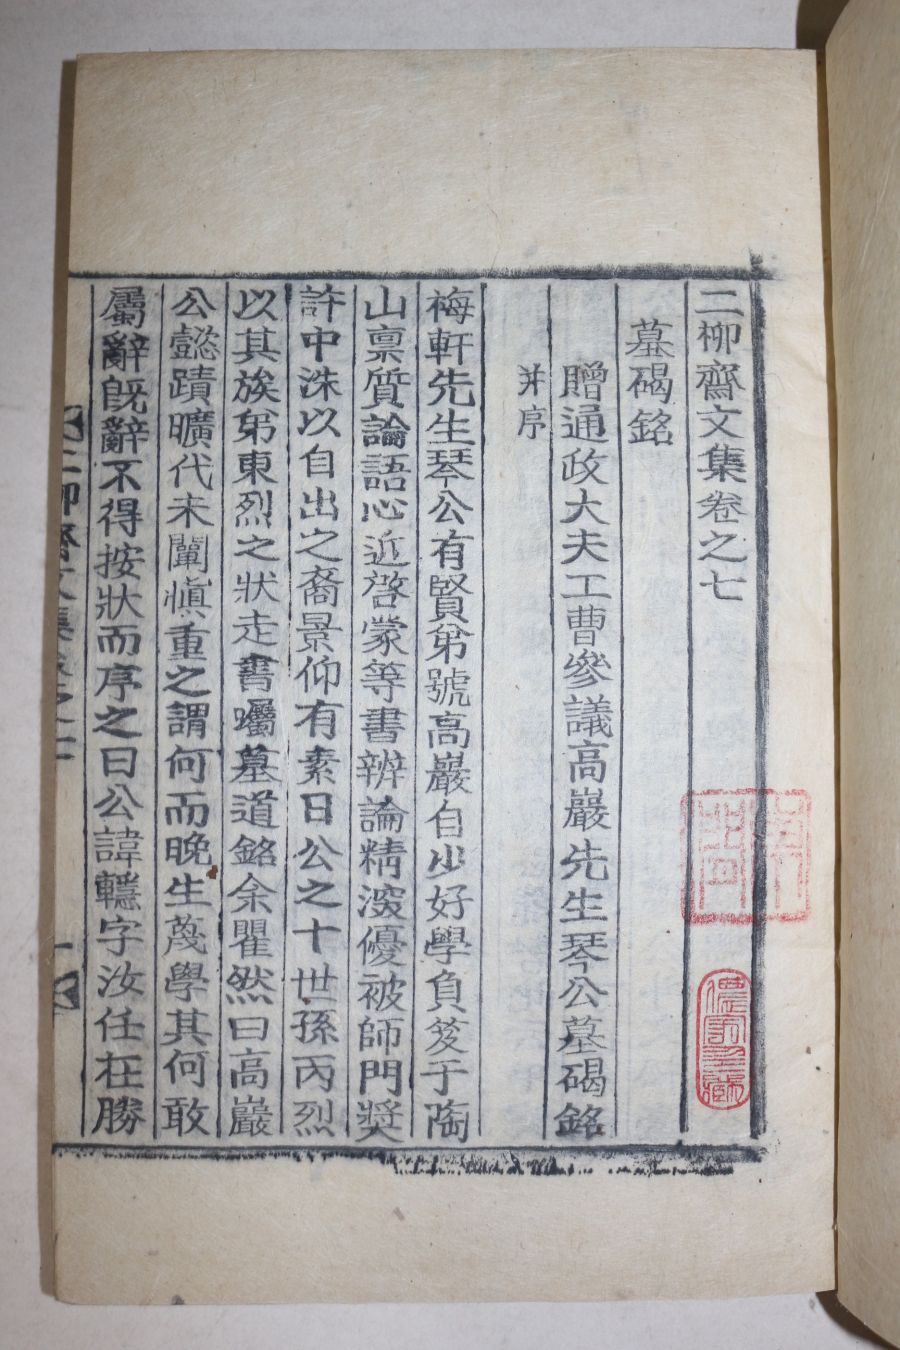 二柳齋文集卷之七
墓碣銘
贈通政大夫工曹參議高巖先生琴公墓碣銘
并序
梅軒先生琴公有賢弟號高巖自少好學負笈于陶
山禀質論語心近啓蒙等書辨論精深優被師門奬
許中洙以自出之裔景仰有素日公之十世孫丙烈
以其族弟東烈之狀走書囑墓道銘余瞿然曰高巖
公懿蹟曠代未闡愼重之謂何而晩生蔑學其何敢
屬辭旣辭不得按狀而序之曰公諱軆字汝任在勝
二柳齋文集卷之七
一